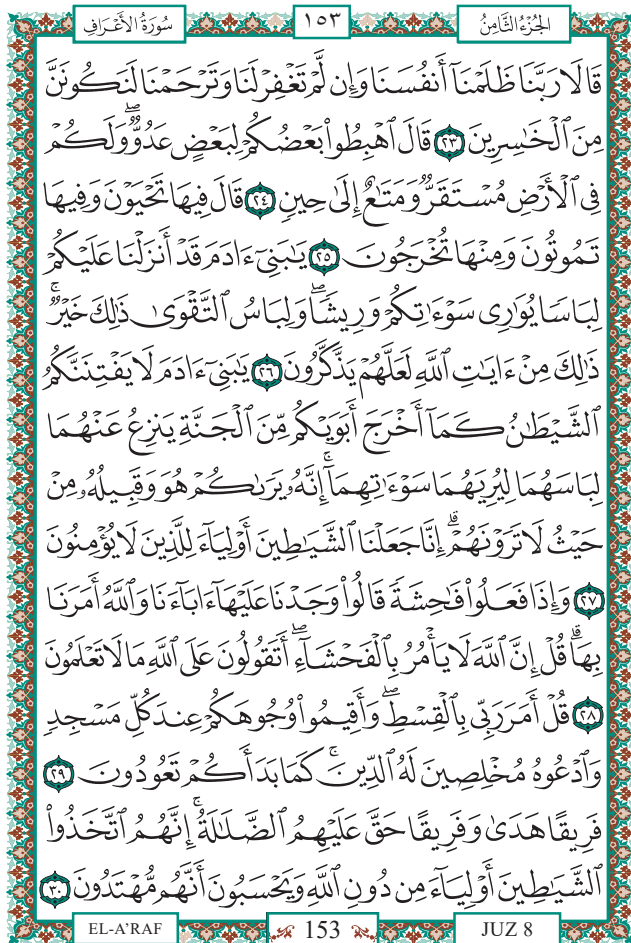 سُورَةُ الأَعْرَافِ ١٥٣ الجُزْءُ الثَّامِنُ
قَالَا رَبَّنَا ظَلَمْنَآ أَنفُسَنَا وَإِن لَّمْ تَغْفِرْ لَنَا وَتَرْحَمْنَا لَنَكُونَنَّ
مِنَ ٱلْخَٰسِرِينَ ٢٣ قَالَ ٱهْبِطُواْ بَعْضُكُمْ لِبَعْضٍ عَدُوٌّۖ وَلَكُمْ
فِى ٱلْأَرْضِ مُسْتَقَرٌّ وَمَتَٰعٌ إِلَىٰ حِينٍ ٢٤ قَالَ فِيهَا تَحْيَوْنَ وَفِيهَا
تَمُوتُونَ وَمِنْهَا تُخْرَجُونَ ٢٥ يَٰبَنِىٓ ءَادَمَ قَدْ أَنزَلْنَا عَلَيْكُمْ
لِبَاسًا يُوَٰرِى سَوْءَٰتِكُمْ وَرِيشًاۖ وَلِبَاسُ ٱلتَّقْوَىٰ ذَٰلِكَ خَيْرٌۚ
ذَٰلِكَ مِنْ ءَايَٰتِ ٱللَّهِ لَعَلَّهُمْ يَذَّكَّرُونَ ٢٦ يَٰبَنِىٓ ءَادَمَ لَا يَفْتِنَنَّكُمُ
ٱلشَّيْطَٰنُ كَمَآ أَخْرَجَ أَبَوَيْكُم مِّنَ ٱلْجَنَّةِ يَنزِعُ عَنْهُمَا
لِبَاسَهُمَا لِيُرِيَهُمَا سَوْءَٰتِهِمَآۚ إِنَّهُۥ يَرَىٰكُمْ هُوَ وَقَبِيلُهُۥ مِنْ
حَيْثُ لَا تَرَوْنَهُمْۗ إِنَّا جَعَلْنَا ٱلشَّيَٰطِينَ أَوْلِيَآءَ لِلَّذِينَ لَا يُؤْمِنُونَ
٢٧ وَإِذَا فَعَلُواْ فَٰحِشَةً قَالُواْ وَجَدْنَا عَلَيْهَآ ءَابَآءَنَا وَٱللَّهُ أَمَرَنَا
بِهَاۗ قُلْ إِنَّ ٱللَّهَ لَا يَأْمُرُ بِٱلْفَحْشَآءِۖ أَتَقُولُونَ عَلَى ٱللَّهِ مَا لَا تَعْلَمُونَ
٢٨ قُلْ أَمَرَ رَبِّى بِٱلْقِسْطِۖ وَأَقِيمُواْ وُجُوهَكُمْ عِندَ كُلِّ مَسْجِدٍ
وَٱدْعُوهُ مُخْلِصِينَ لَهُ ٱلدِّينَۚ كَمَا بَدَأَكُمْ تَعُودُونَ ٢٩
فَرِيقًا هَدَىٰ وَفَرِيقًا حَقَّ عَلَيْهِمُ ٱلضَّلَٰلَةُۚ إِنَّهُمُ ٱتَّخَذُواْ
ٱلشَّيَٰطِينَ أَوْلِيَآءَ مِن دُونِ ٱللَّهِ وَيَحْسَبُونَ أَنَّهُم مُّهْتَدُونَ ٣٠
EL-A'RAF 153 JUZ 8